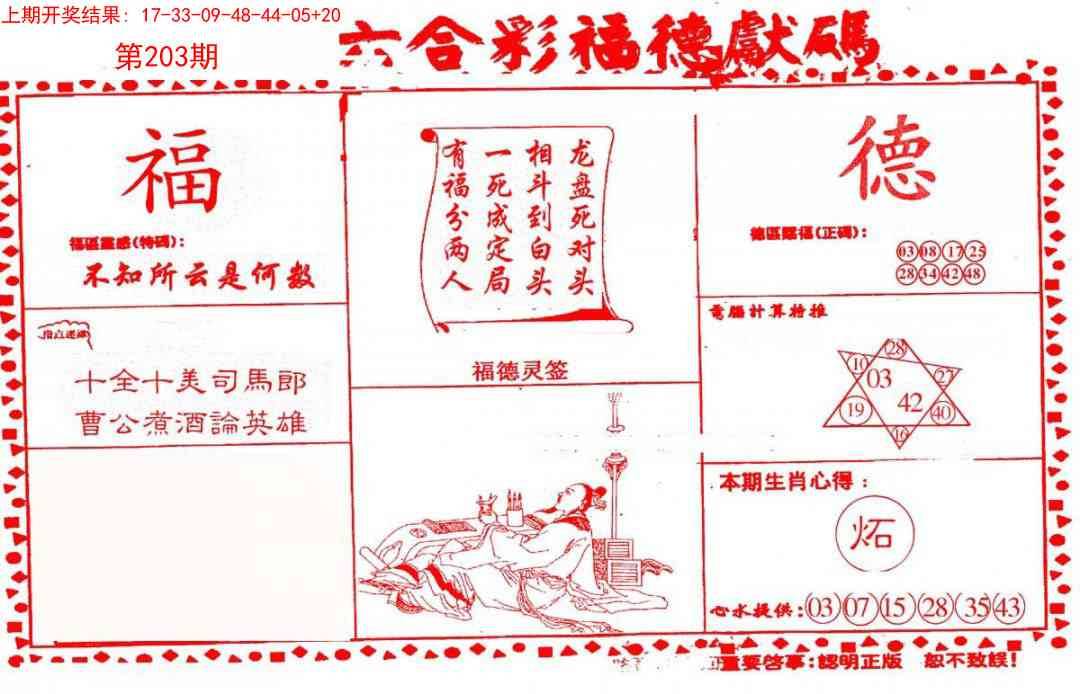 上期开奖结果：17-33-09-48-44-05+20
第203期
六合彩福德獻碼
福
福區靈感(特碼)：
不知所云是何数
指点迷津
十全十美司馬郎
曹公煮酒論英雄
龙盘死对头
相斗到白头
一死成定局
有福分两人
福德灵签
德
德區賜福(正碼)：
03 08 17 25
28 34 42 48
電腦計算特推
28
10 27
03
42
19 40
16
本期生肖心得：
炻
心水提供：03 07 15 28 35 43
重要啓事：認明正版 恕不致誤！